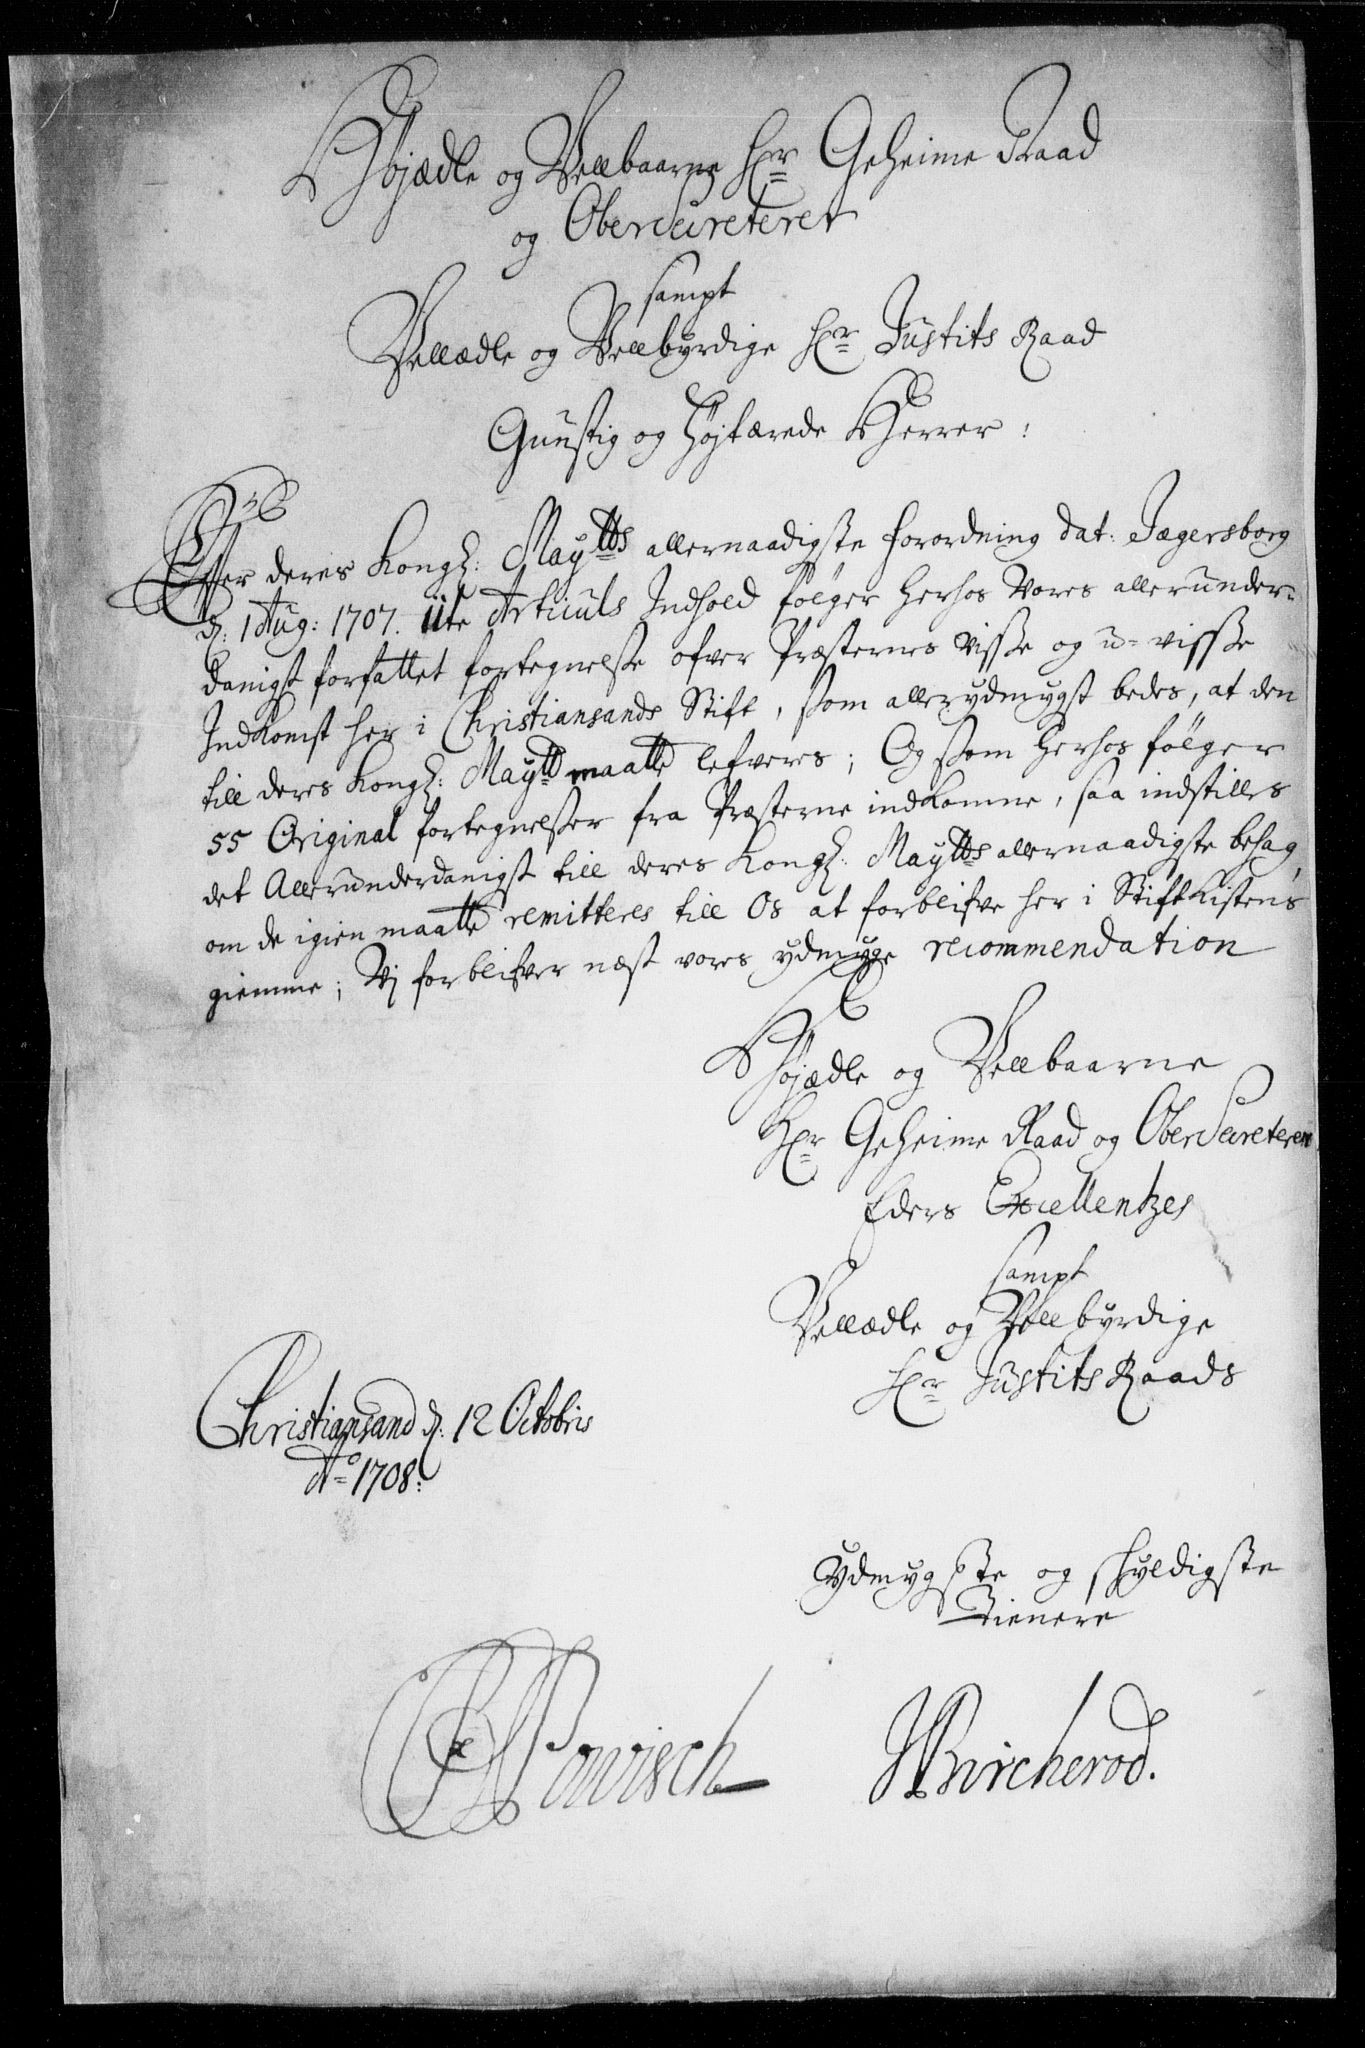 Højædle og Vellbaarne Hr Geheime Raad
og Obersecreterer
sampt
Vellædle og Vellbyrdige Hr Justits Raad
Gunstig og Højtærede Herrer:
Efter deres Kongl: Maytts allernaadigste forordning dat: Jægersborg
d: 1 Aug: 1707. 11te Articuls Indhold følger herhos Vores allerunder-
danigst forfattet fortegnelse ofver Præsternes Visse og u-visse
Indkomst her i Christiansands Stift, som allerydmygst bedes, at den
till deres Kongl: Maytt maatte lefveres; Og som herhos følger
55 Original fortegnelser fra Præsterne indkomne, saa indstilles
det Allerunderdanigst till deres Kongl: Maytts allernaadigste behag,
om de igien maatte remitteres till Os at forblifve her i Stift Kistens
giemme; Vj forblifver næst vores ydmyge recommendation
Højædle og Vellbaarne
Hr Geheime Raad og Obersecreterer
Eders Excellentzes
sampt
Vellædle og Vellbyrdige
Hr Justits Raads
Christiansand d: 12 Octobris
Ao 1708:
Ydmygste og skyldigste
Tienere
Powisch
Bircherod.